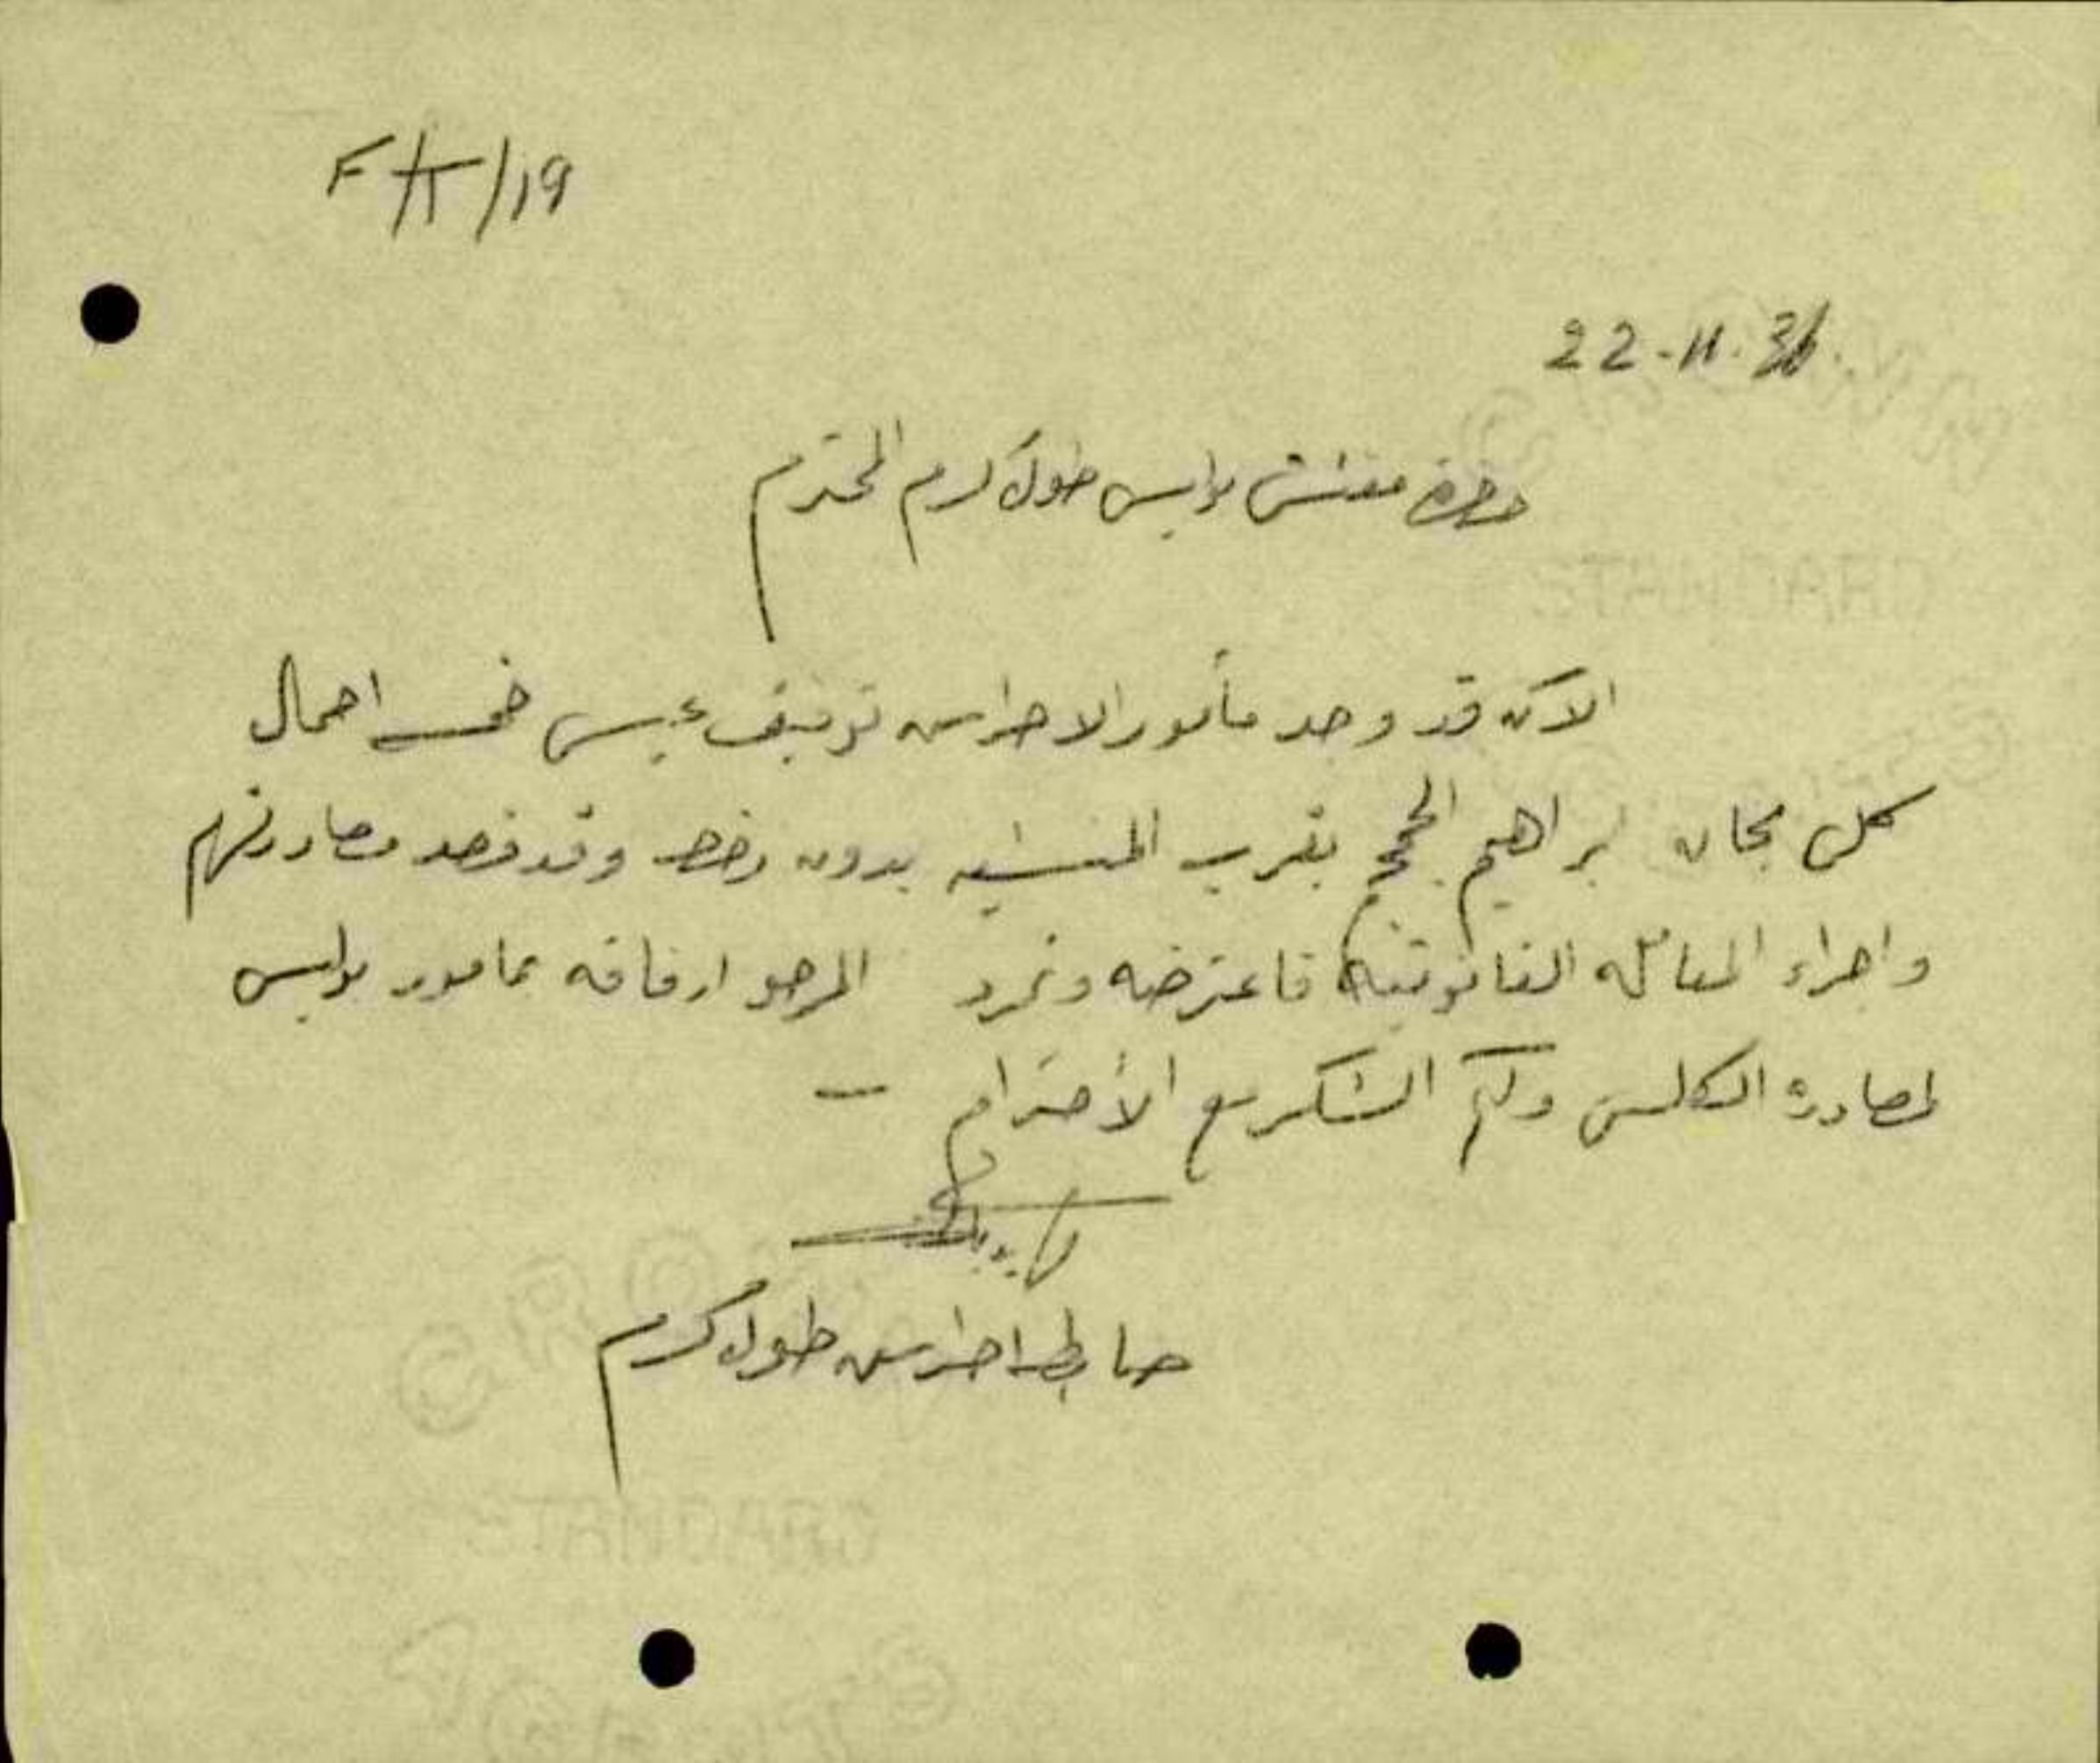 F/T/19
22-11-36
حضرة مفتش بوليس طولكرم المحترم
الآن قد وجد مأمور الاحراس توفيق عيسى خمسة احمال
كلس بمحل ابراهيم الحجج بقرب المنشيه بدون رخصه وقد قصد مصادرتهم
واجراء المعامله القانونيه فاعترضه وتمرد المرجو ارفاقه بمامور بوليس
لمصادرة الكلس ولكم الشكر مع الأحترام -
ضابط احراس طولكرم